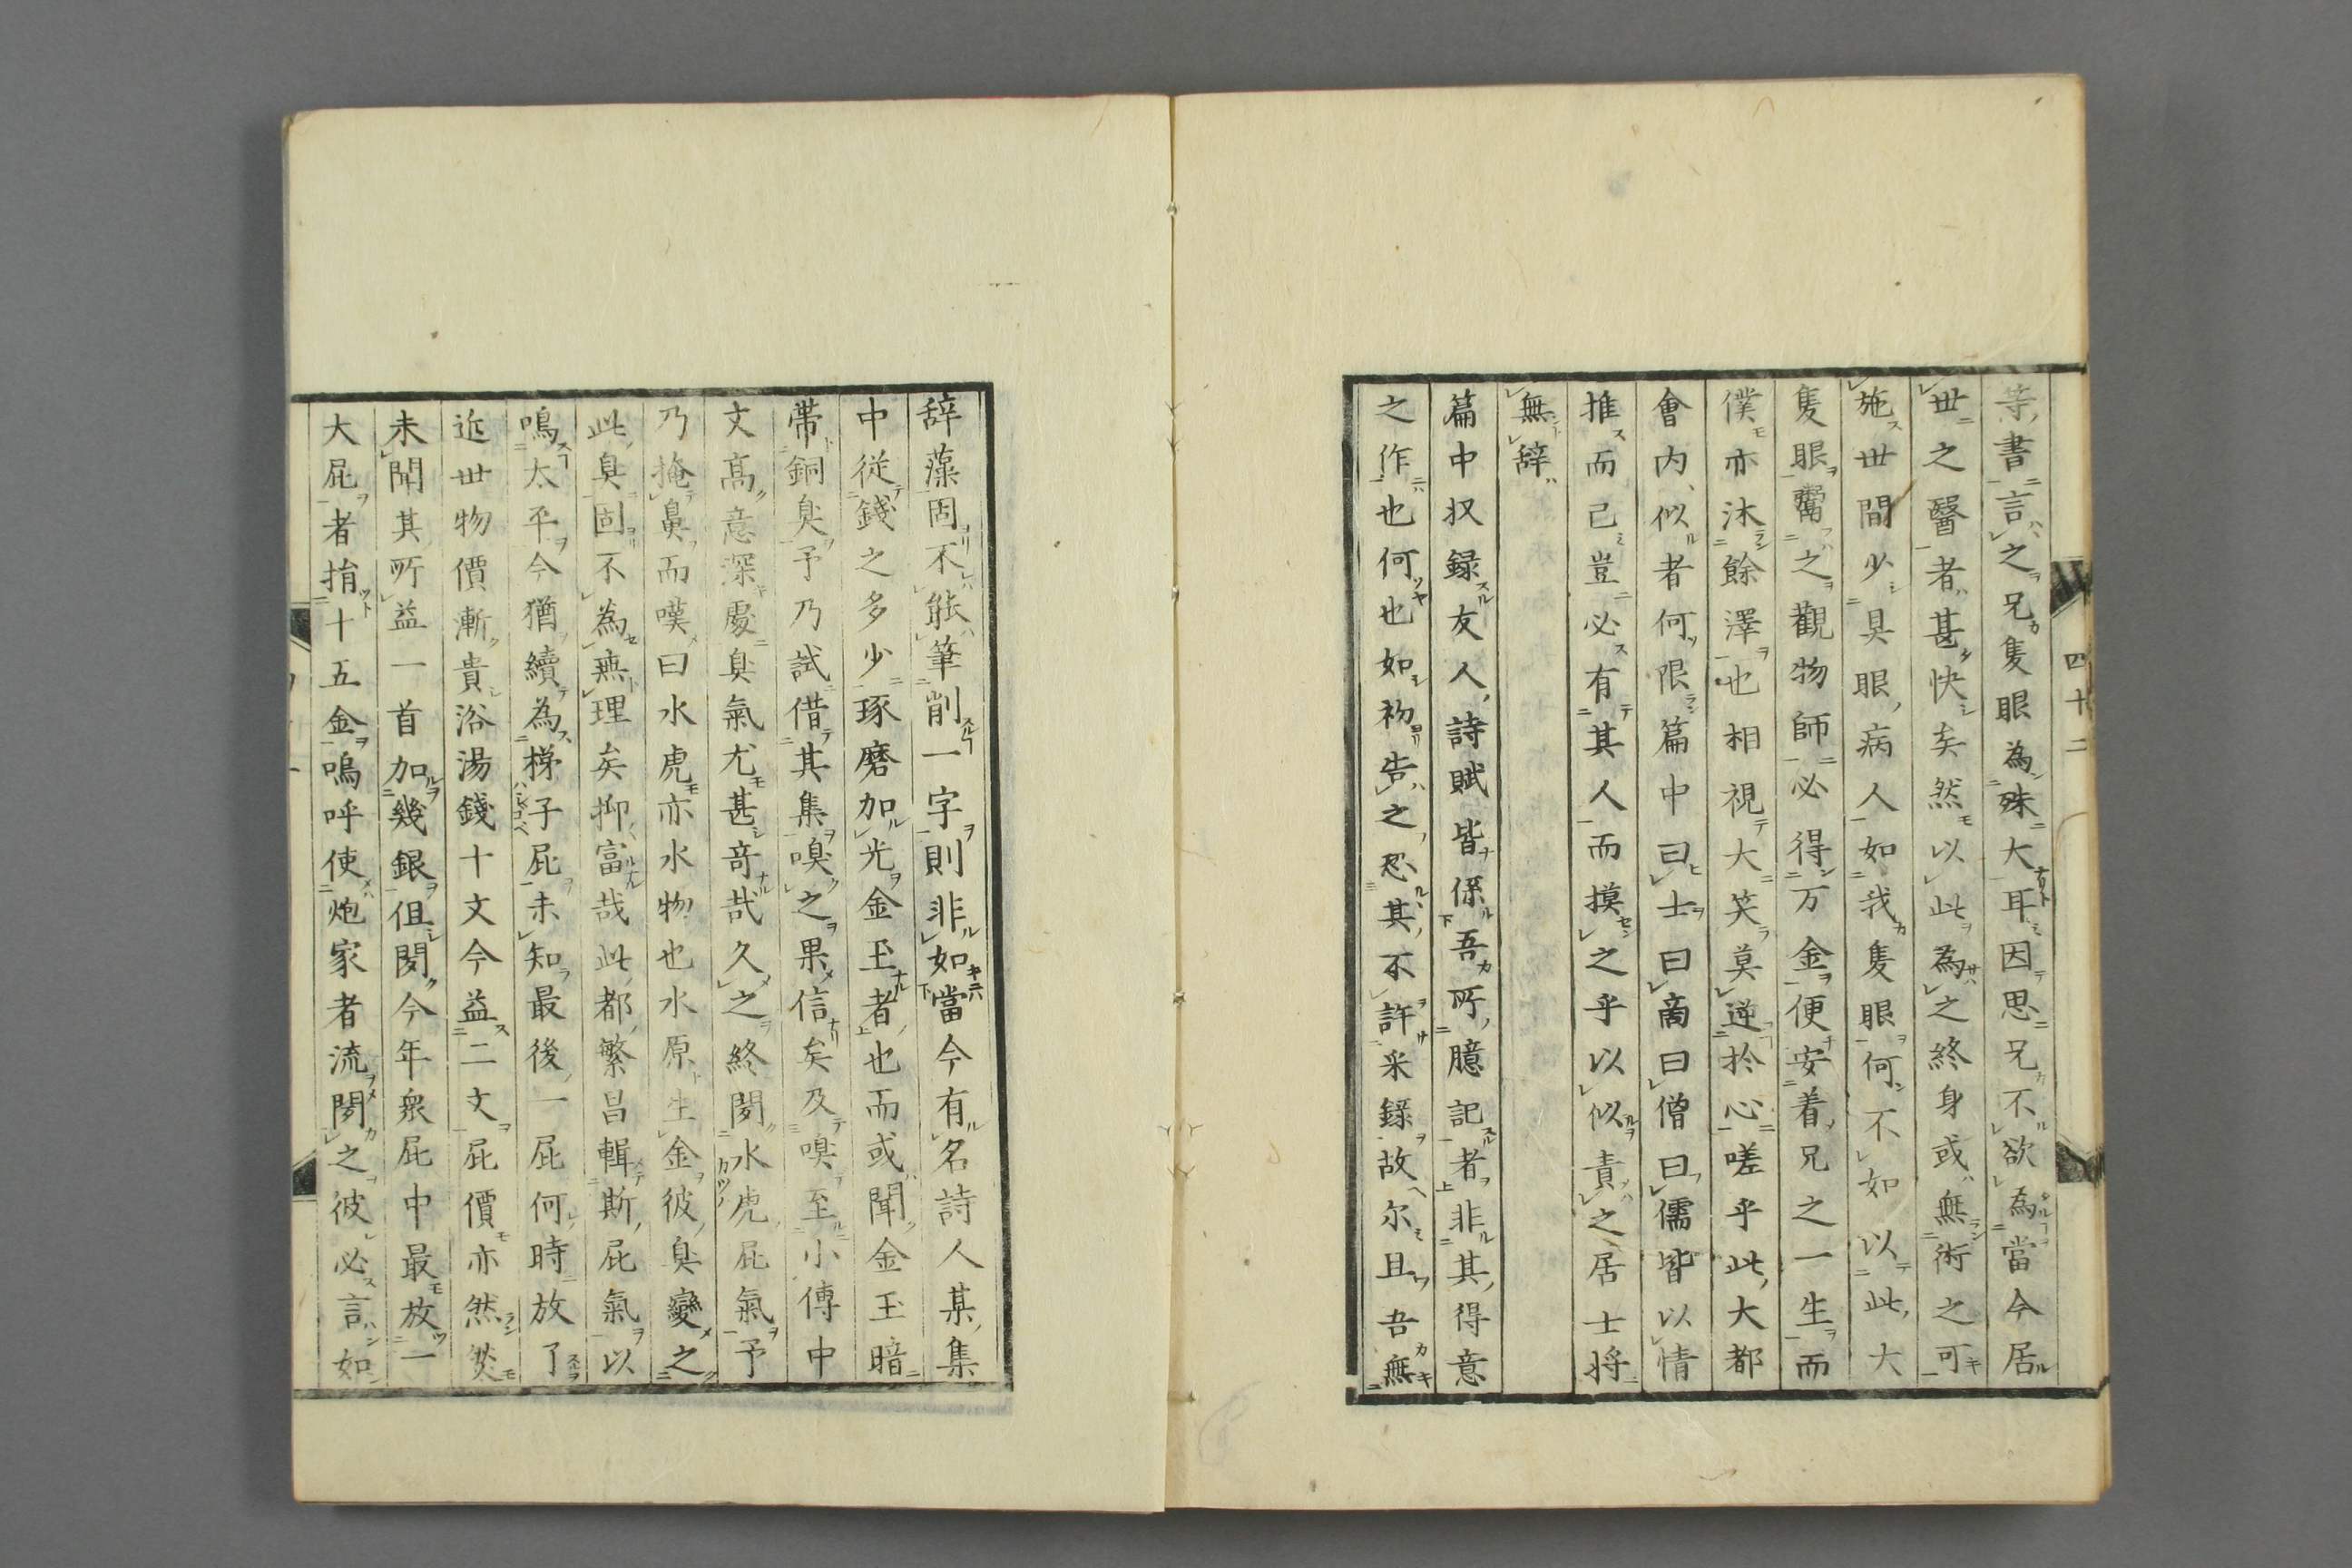 等書言之兄隻眼為殊大耳因思兄不欲為當今居
世之醫者甚快矣然以此為之終身或無術之可
施世間少具眼病人如我隻眼何不如以此大
隻眼鬻之觀物師必得万金便安着兄之一生而
僕亦沐餘澤也相視大笑莫逆於心嗟乎此大都
會内似者何限篇中曰士曰商曰僧曰儒皆以情
推而已豈必有其人而摸之乎以似責之居士将
無辞
篇中収録友人詩賦皆係吾所臆記者非其得意
之作也何也如初告之恐其不許采録故尔且吾無
四十二
辞藻固不能筆削一字則非如當今有名詩人某集
中従錢之多少琢磨加光金玉者也而或聞金玉暗
帯銅臭予乃試借其集嗅之果信矣及嗅至小傳中
文高意深處臭氣尤甚奇哉久之終閲水虎屁氣予
乃掩鼻而嘆曰水虎亦水物也水原生金彼臭變之
此臭固不為無理矣抑富哉此都繁昌輯斯屁氣以
鳴太平今猶續為梯子屁未知最後一屁何時放了
近世物價漸貴浴湯錢十文今益二文屁價亦然焂
未聞其所益一首加幾銀但閲今年衆屁中最放一
大屁者揹十五金嗚呼使炮家者流閲之彼必言如